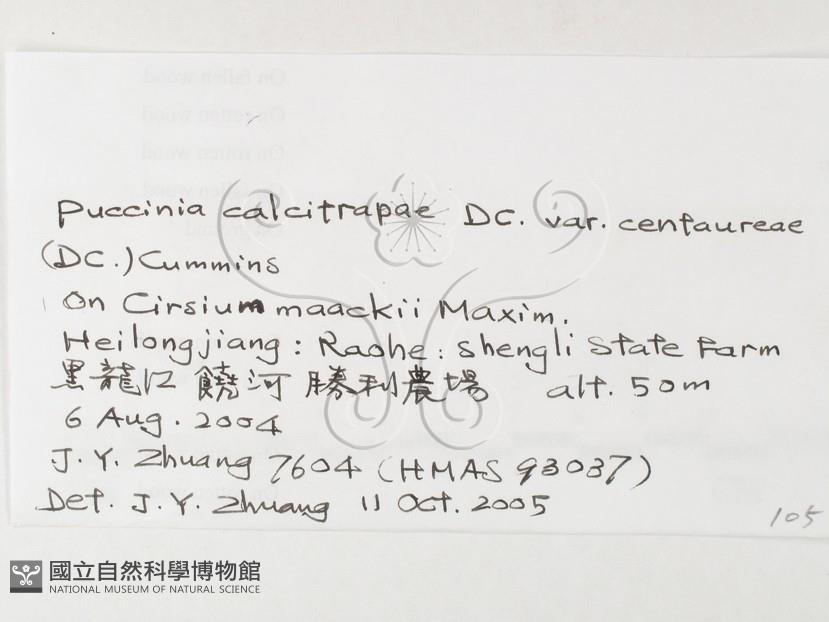 Puccinia calcitrapae DC. var. centaureae
(DC.) Cummins
On Cirsium maackii Maxim.
Heilongjiang: Raohe: Shengli State Farm
黑龍江 饒河 勝利農場 alt. 50m
6 Aug. 2004
J. Y. Zhuang 7604 (HMAS 93037)
Det. J. Y. Zhuang 11 Oct. 2005
105
國立自然科學博物館
NATIONAL MUSEUM OF NATURAL SCIENCE
On fallen wood
On rotten wood
On rotten wood